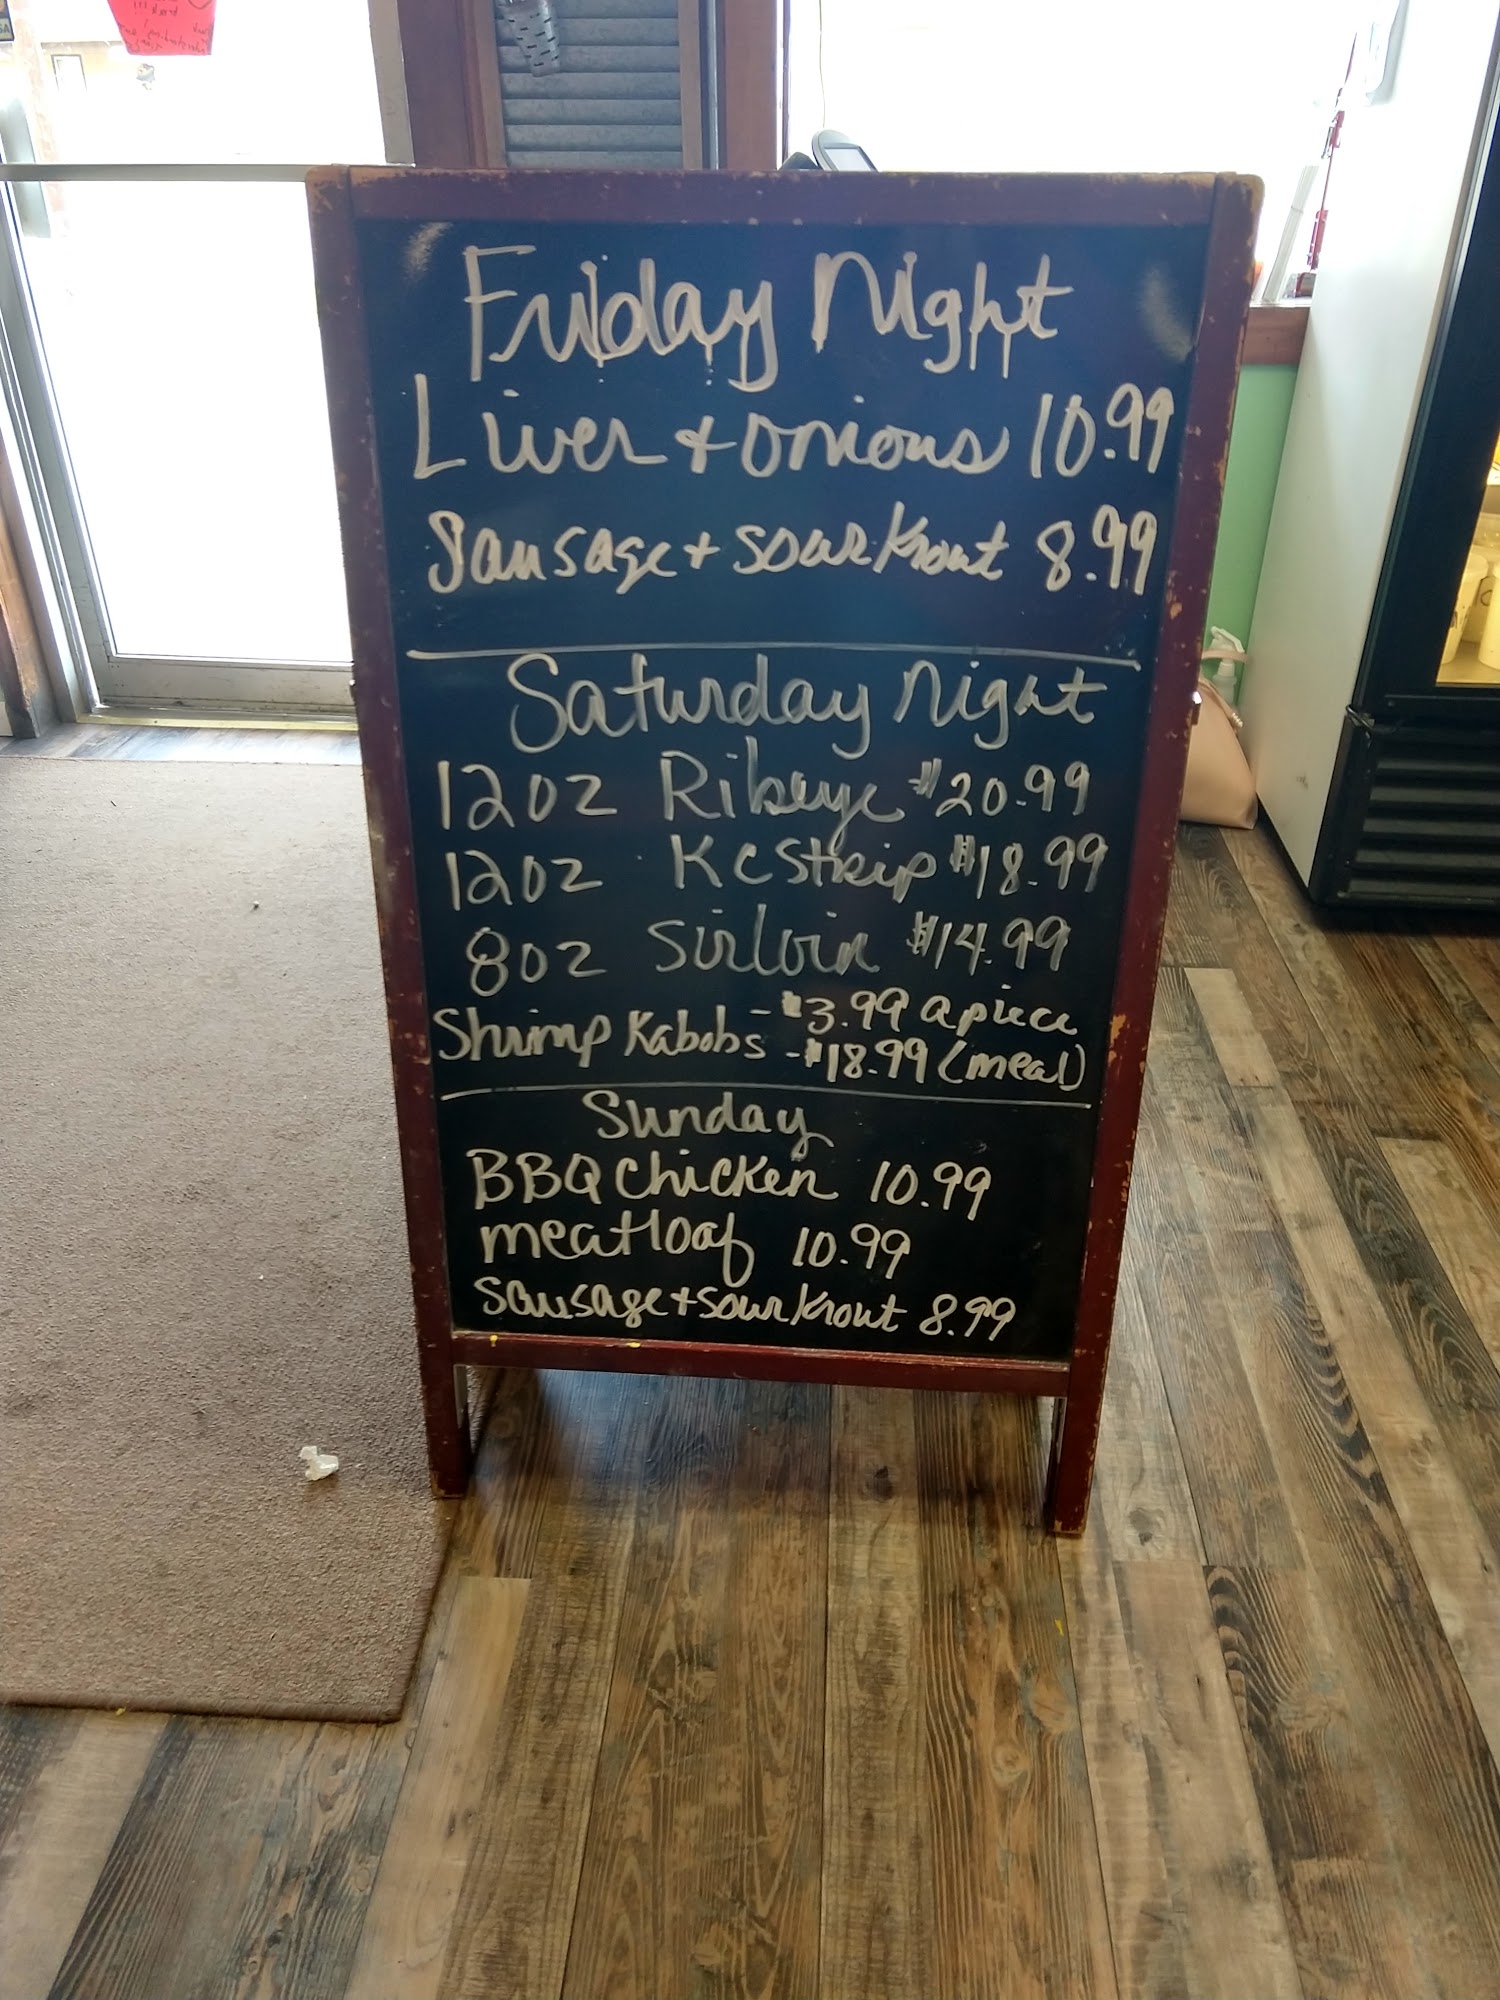 Friday Night
Liver + onions 10.99
Sausage + sour Krout 8.99
Saturday Night
12oz Ribeye $20.99
12oz KC Strip $18.99
8oz Sirloin $14.99
Shrimp Kabobs - $3.99 a piece
- $18.99 (meal)
Sunday
BBQ Chicken 10.99
meatloaf 10.99
Sausage + sour Krout 8.99